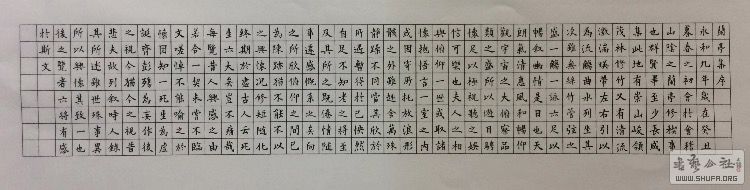 蘭亭集序
永和九年歲在癸丑
暮春之初會於會稽
山陰之蘭亭修禊事
也群賢畢至少長咸
集此地有崇山峻領
茂林修竹又有清流
激湍映帶左右引以
為流觴曲水列坐其
次雖無絲竹管弦之
盛一觴一詠亦足以
暢敘幽情是日也天
朗氣清惠風和暢仰
觀宇宙之大俯察品
類之盛所以遊目騁
懷足以極視聽之娛
信可樂也夫人之相
與俯仰一世或取諸
懷抱悟言一室之內
或因寄所托放浪形
骸之外雖趣舍萬殊
靜躁不同當其欣於
所遇暫得於己快然
自足不知老之將至
及其所之既倦情隨
事遷感慨係之矣向
之所欣俯仰之間已
為陳跡猶不能不以
之興懷況修短隨化
終期於盡古人云死
生亦大矣豈不痛哉
每覽昔人興感之由
若合一契未嘗不臨
文嗟悼不能喻之於
懷固知一死生為虛
誕齊彭殤為妄作後
之視今今之視昔
悲夫故列敘時人錄
其所述雖世殊事異
所以興懷其致一也
後之覽者亦將有感
於斯文
書藝公社
WWW.SHUFA.ORG